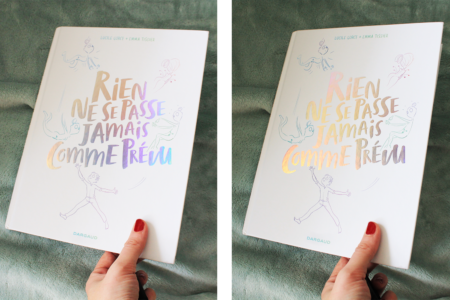 RIEN
NE SE PASSE
JAMAIS
COMME PRÉVU
RIEN
NE SE PASSE
JAMAIS
COMME PRÉVU